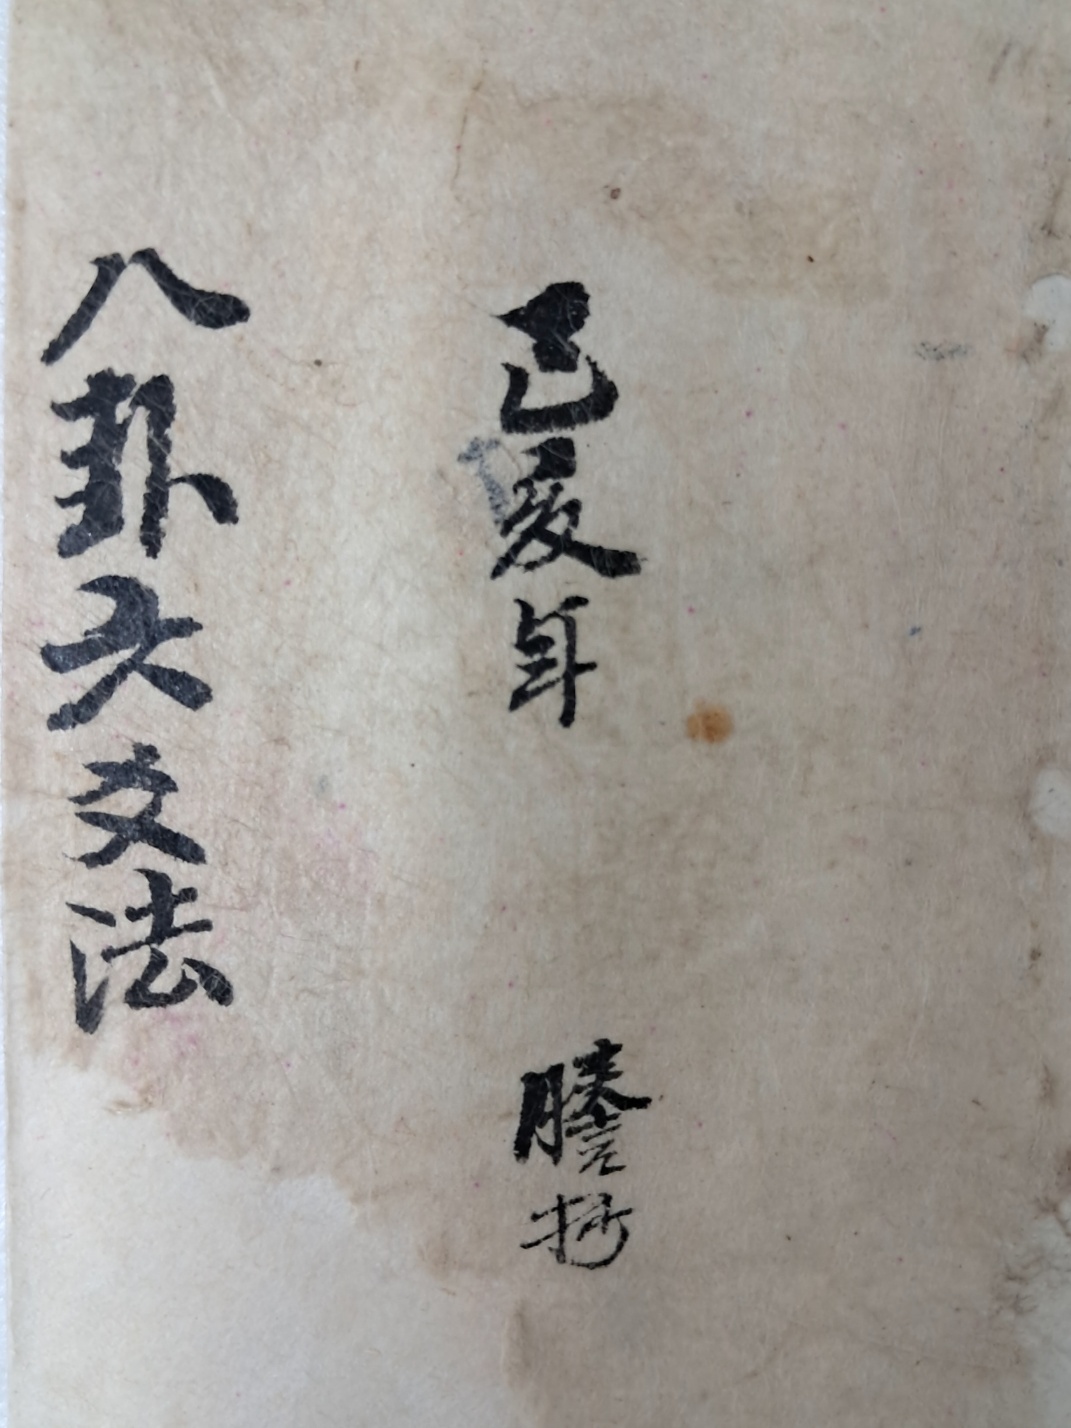 己亥年
謄抄
八卦六爻法